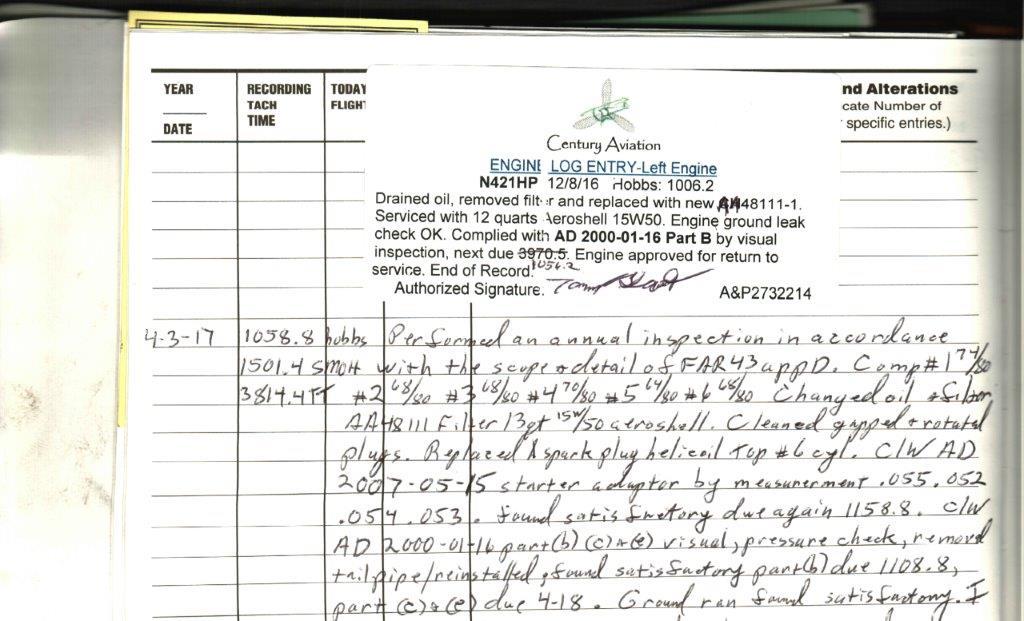 YEAR
DATE
RECORDING
TACH
TIME
TODAY
FLIGHT
nd Alterations
cate Number of
specific entries.)
Century Aviation
ENGINE LOG ENTRY-Left Engine
N421HP 12/8/16 Hobbs: 1006.2
Drained oil, removed filter and replaced with new AA48111-1.
Serviced with 12 quarts Aeroshell 15W50. Engine ground leak
check OK. Complied with AD 2000-01-16 Part B by visual
inspection, next due 3970.5. Engine approved for return to
1056.2
service. End of Record.
Authorized Signature. A&P2732214
4-3-17 1058.8 hobbs Performed an annual inspection in accordance
1501.4 SMOH with the scope + detail of FAR 43 app D. Comp #1 74/80
3814.4 TT #2 68/80 #3 68/80 #4 70/80 #5 64/80 #6 68/80 Changed oil + filter
AA48111 Filter 13qt 15W/50 aeroshell. Cleaned gapped + rotated
plugs. Replaced 1 spark plug helicoil Top #6 cyl. C/W AD
2007-05-15 starter adaptor by measurerment .055, .052
.054 .053. found satisfactory due again 1158.8. C/W
AD 2000-01-16 part (b) (c) + (e) visual, pressure check, removed
tailpipe/reinstalled, found satisfactory part (b) due 1108.8,
part (c) + (e) due 4-18. Ground ran found satisfactory. I